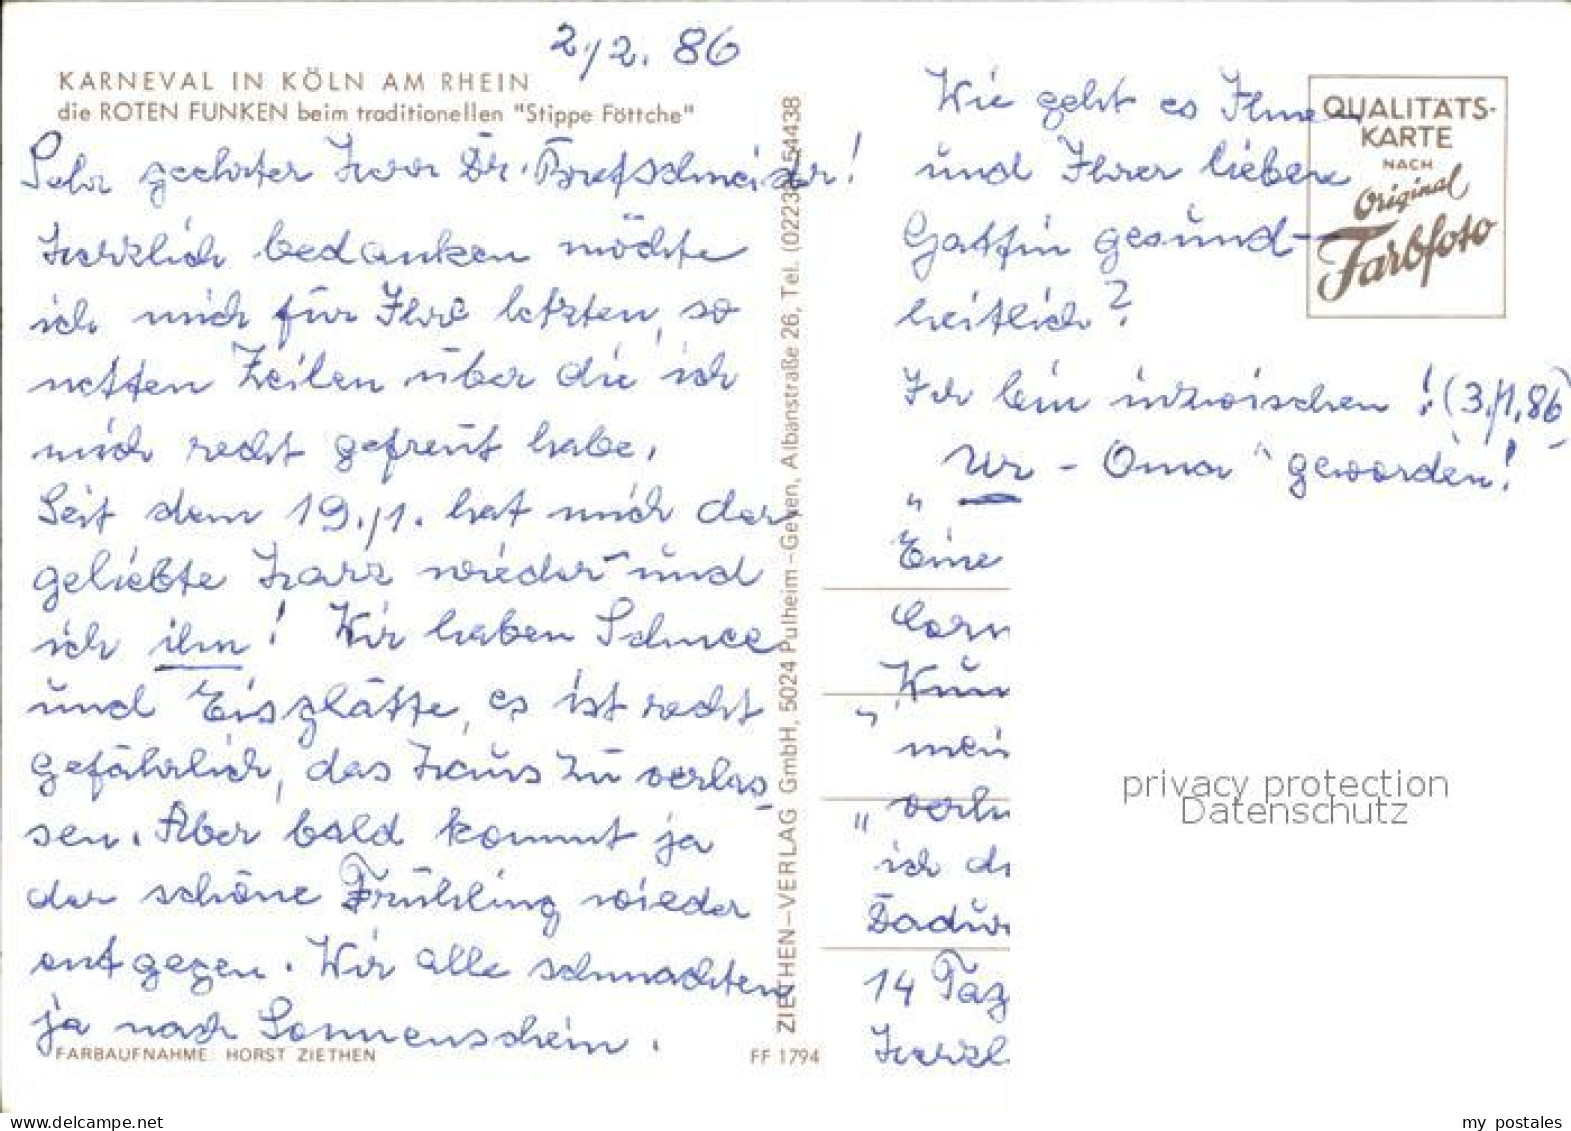 2./2. 86
KARNEVAL IN KÖLN AM RHEIN
die ROTEN FUNKEN beim traditionellen "Stippe Föttche"
Sehr geehrter Herr Dr. Bretschneider!
Herzlich bedanken möchte
ich mich für Ihre letzten, so
netten Zeilen über die ich
mich recht gefreut habe.
Seit dem 19./1. hat mich der
geliebte Harz wieder und
ich ihn! Wir haben Schnee
und Eisglätte, es ist recht
gefährlich, das Haus zu verlas-
sen. Aber bald kommt ja
der schöne Frühling wieder
entgegen. Wir alle schmachten
ja nach Sonnenschein.
FARBAUFNAHME: HORST ZIETHEN
FF 1794
ZIETHEN-VERLAG GmbH, 5024 Pulheim-Geyen, Albanstraße 26, Tel. 54438
Wie geht es Ihnen
und Ihrer lieben
Gattin gesund-
heitlich?
Ich bin inzwischen! (3./1.86)
"Ur-Oma" geworden!
Eine
Corn
Kun
mein
verl
ich d
Dadur
14 Tag
Herzl
QUALITÄTS-
KARTE
NACH
Original
Farbfoto
privacy protection
Datenschutz
www.delcampe.net
my_postales